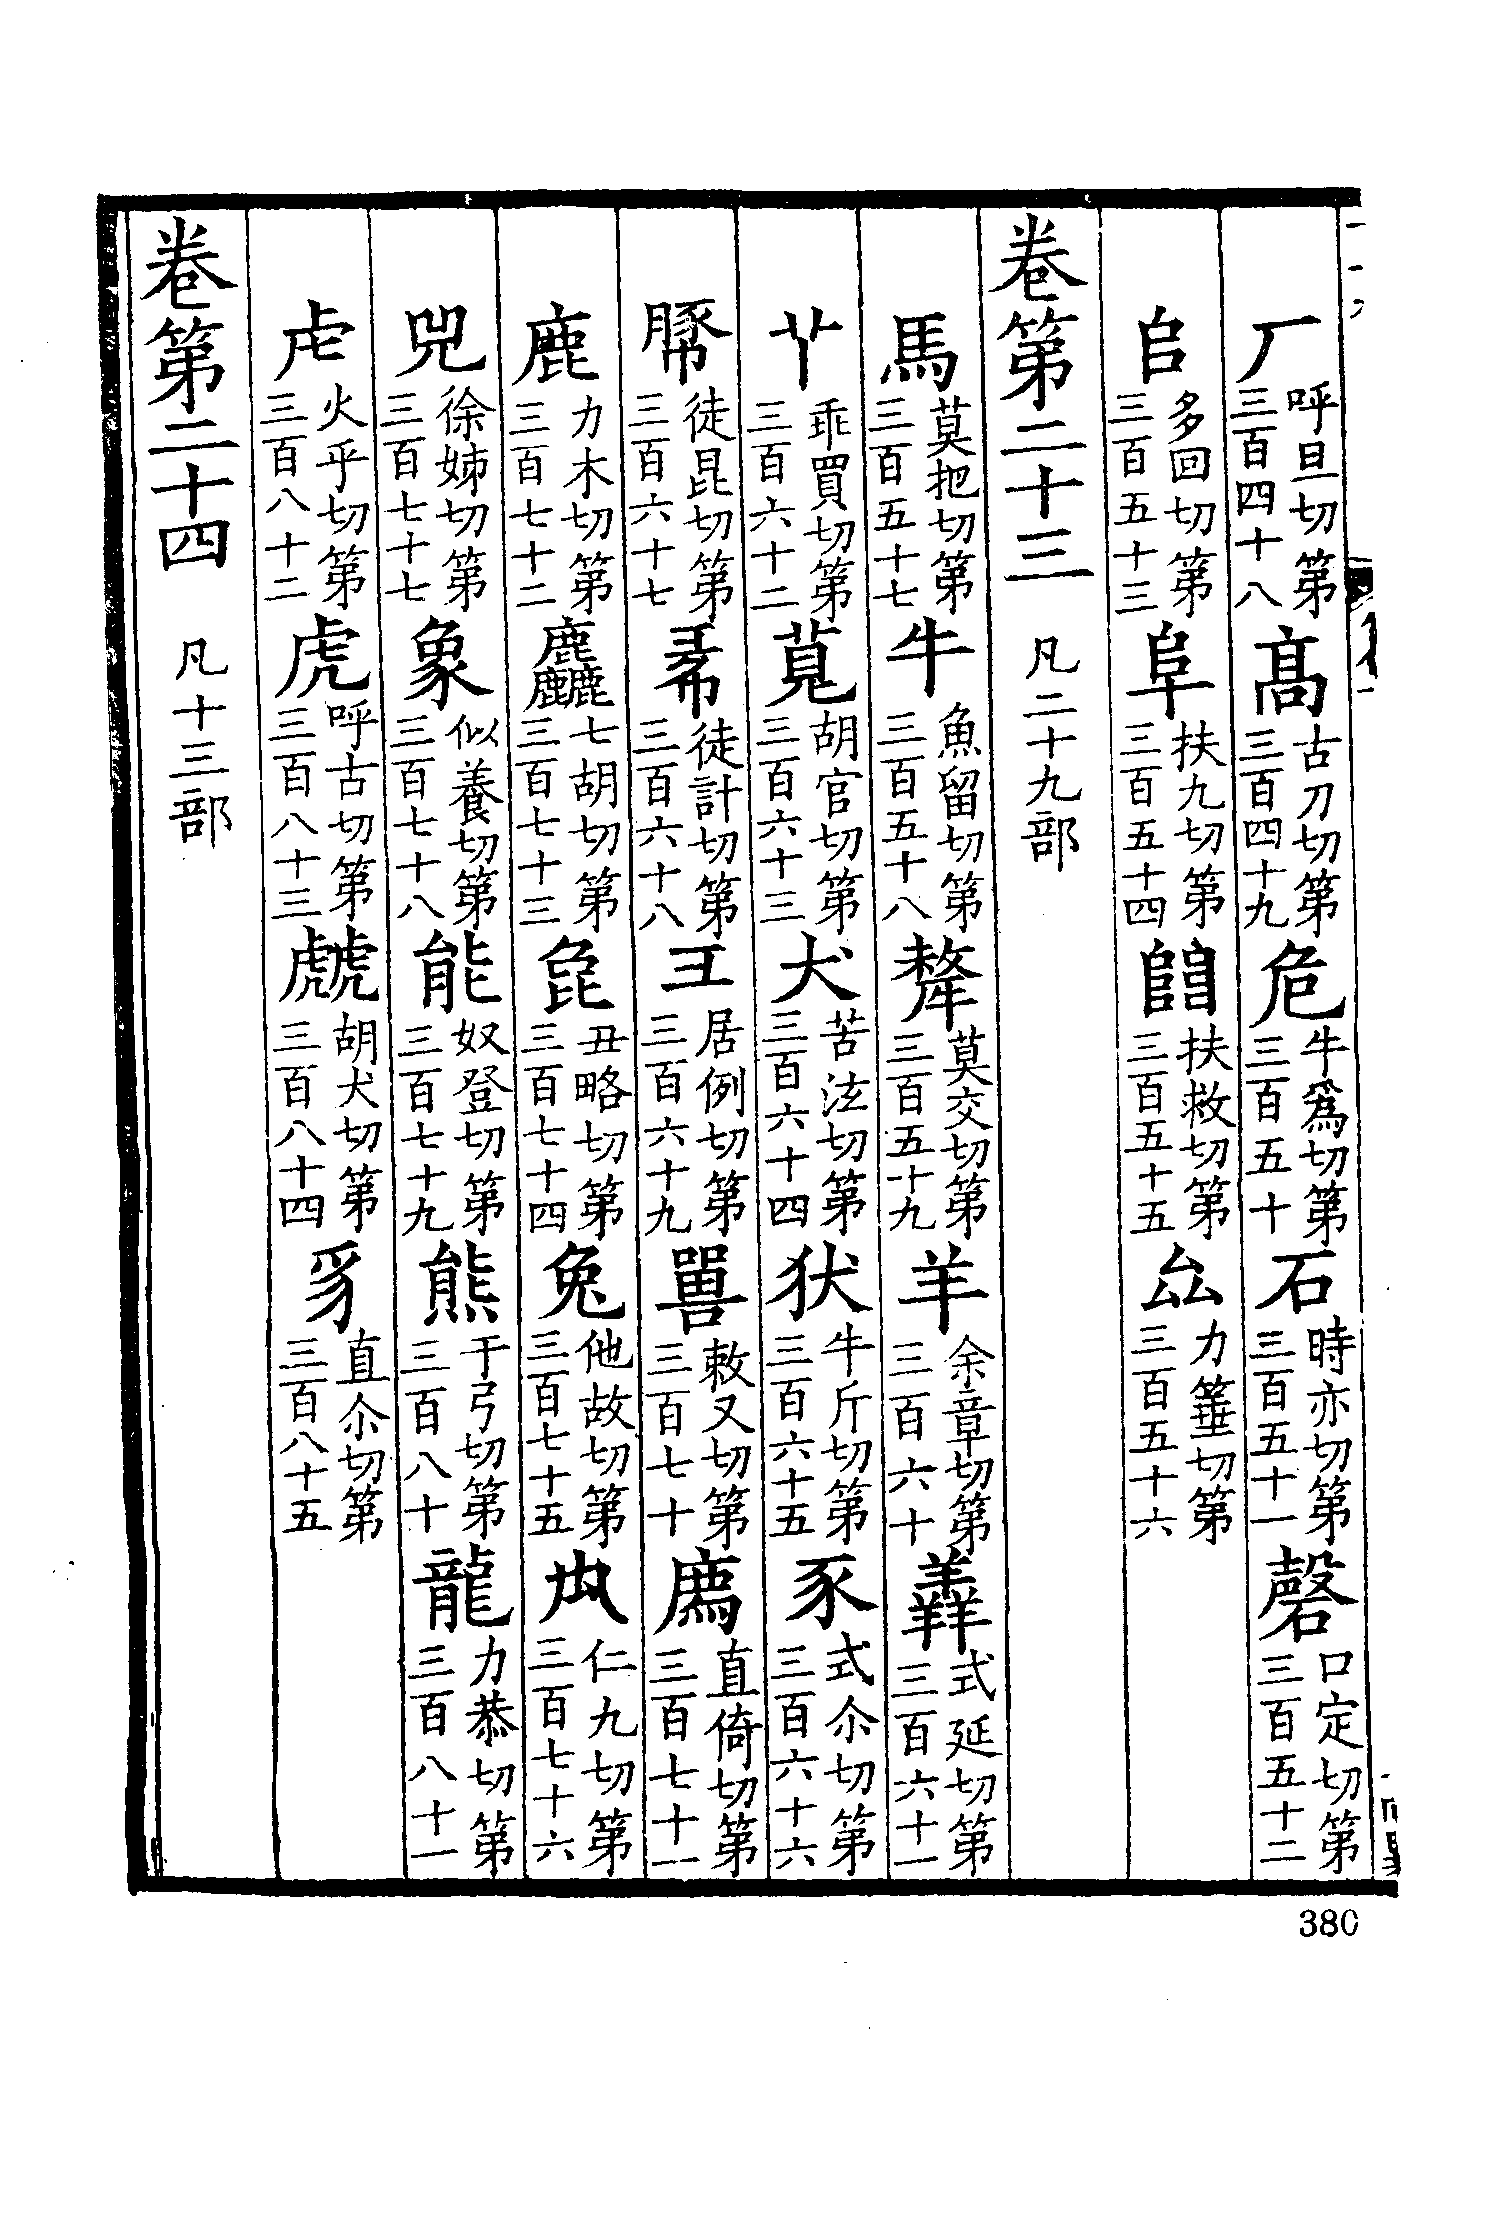 厂呼旦切第三百四十八髙古刀切第三百四十九危牛爲切第三百五十石時亦切第三百五十一磬口定切第三百五十二
𠂤多回切第三百五十三阜扶九切第三百五十四𨺅扶救切第三百五十五厽力箠切第三百五十六
卷第二十三 凡二十九部
馬莫把切第三百五十七牛魚留切第三百五十八犛莫交切第三百五十九羊余章切第三百六十羴式延切第三百六十一
𦫳乖買切第三百六十二萈胡官切第三百六十三犬苦泫切第三百六十四㹜牛斤切第三百六十五豕式尒切第三百六十六
徒昆切第三百六十七㣇徒計切第三百六十八彑居例切第三百六十九嘼敕又切第三百七十廌直倚切第三百七十一
鹿力木切第三百七十二麤七胡切第三百七十三㲋丑略切第三百七十四兔他故切第三百七十五禸仁九切第三百七十六
兕徐姊切第三百七十七象似養切第三百七十八能奴登切第三百七十九熊于弓切第三百八十龍力恭切第三百八十一
虍火乎切第三百八十二虎呼古切第三百八十三虤胡犬切第三百八十四豸直尒切第三百八十五
卷第二十四 凡十三部
380